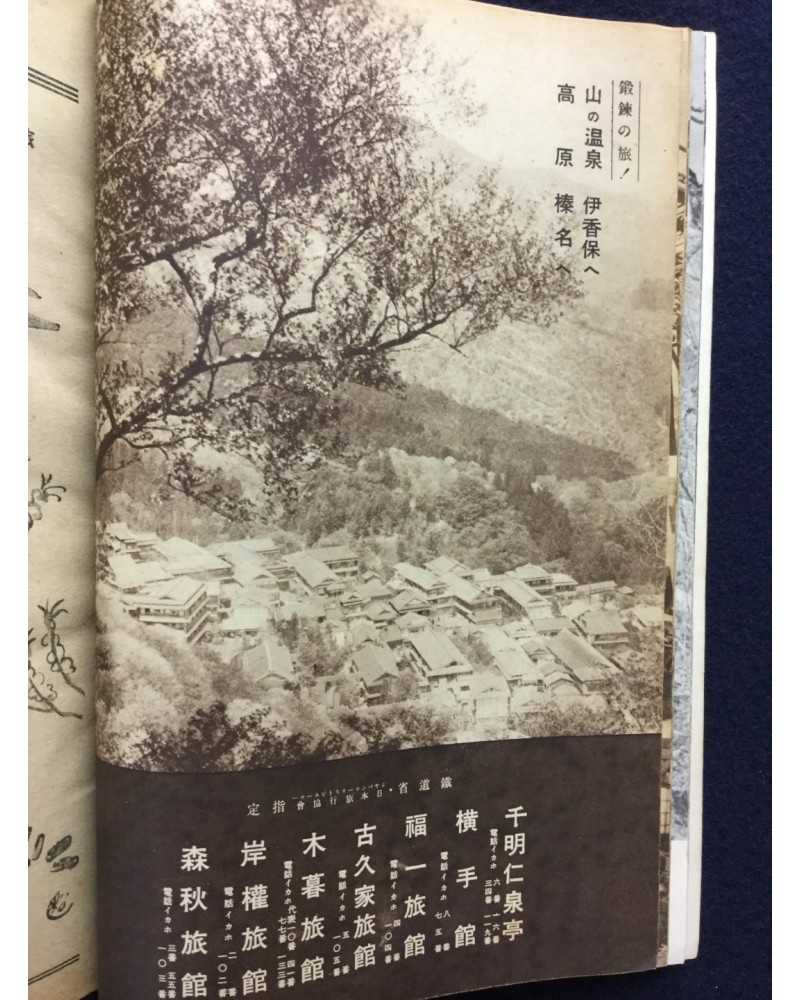 鍛鍊の旅!
山の温泉 伊香保へ
高原 榛名へ
鐵道省・日本旅行協會指定
千明仁泉亭
電話イカホ 六番 一六番
三四番 一一九番
横手館
電話イカホ 八番
七五番
福一旅館
電話イカホ 四番
一〇四番
古久家旅館
電話イカホ 五番
一〇五番
木暮旅館
電話イカホ 代表一〇番 四一番
七七番 一三三番
岸權旅館
電話イカホ 二一番
一〇二番
森秋旅館
電話イカホ 三番 五五番
一〇三番